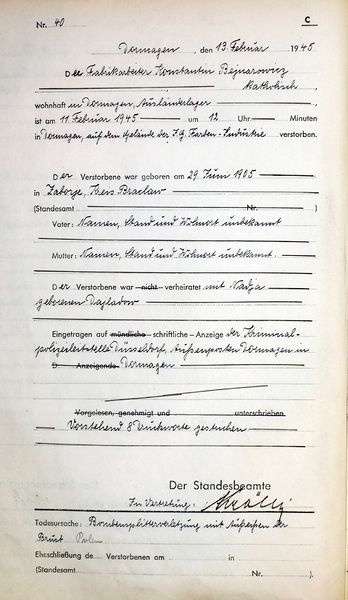 Nr. 40
C
Dormagen, den 13. Februar 1945
Der Fabrikarbeiter Konstantin Bejnarowicz
katholisch,
wohnhaft in Dormagen, Ausländerlager
ist am 11. Februar 1945 um 12 Uhr Minuten
in Dormagen, auf dem Gelände der I.G. Farben-Industrie verstorben.
Der Verstorbene war geboren am 29. Juni 1905
in Zaborje, Kreis Braclaw
(Standesamt Nr. )
Vater: Namen, Stand und Wohnort unbekannt
Mutter: Namen, Stand und Wohnort unbekannt.
Der Verstorbene war nicht verheiratet mit Nadja
geborenen Dayladow
Eingetragen auf mündliche schriftliche Anzeige der Kriminal-
polizeileitstelle Düsseldorf, Außenposten Dormagen in
D. Anzeigende Dormagen
Vorgelesen, genehmigt und unterschrieben
Vorstehend 8 Druckworte gestrichen
Der Standesbeamte
In Vertretung:
Todesursache: Bombensplitterverletzung mit Aufreißen der
Brust Polen
Eheschließung de Verstorbenen am in
(Standesamt Nr. )